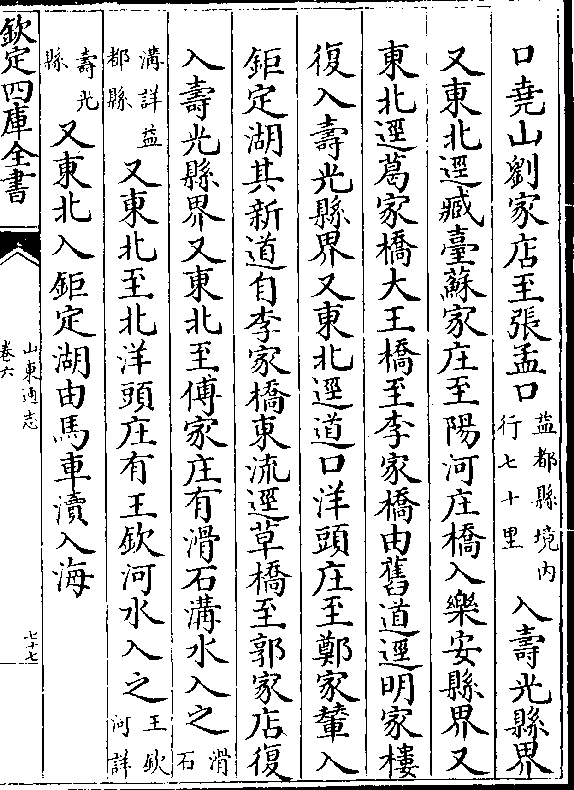 口堯山劉家店至張孟口益都縣境內行七十里入壽光縣界
又東北逕臧臺蘇家庄至陽河庄橋入樂安縣界又
東北逕葛家橋大王橋至李家橋由舊道逕明家樓
復入壽光縣界又東北逕道口洋頭庄至鄭家輦入
鉅定湖其新道自李家橋東流逕草橋至郭家店復
入壽光縣界又東北至傅家庄有滑石溝水入之滑石
溝詳益都縣又東北至北洋頭庄有王欽河水入之王欽河詳
壽光縣又東北入鉅定湖由馬車瀆入海
欽定四庫全書
山東通志
卷六
七十七